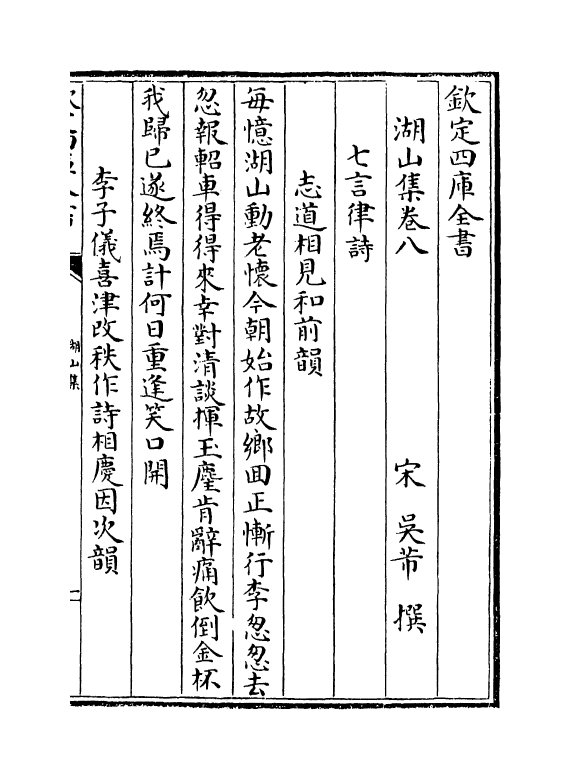 欽定四庫全書
湖山集卷八　　　宋　吳芾　撰
七言律詩
志道相見和前韻
每憶湖山動老懷今朝始作故鄉囬正慚行李怱怱去
忽報軺車得得來幸對清談揮玉麈肯辭痛飲倒金杯
我歸已遂終焉計何日重逢笑口開
李子儀喜津改秩作詩相慶因次韻
湖山集